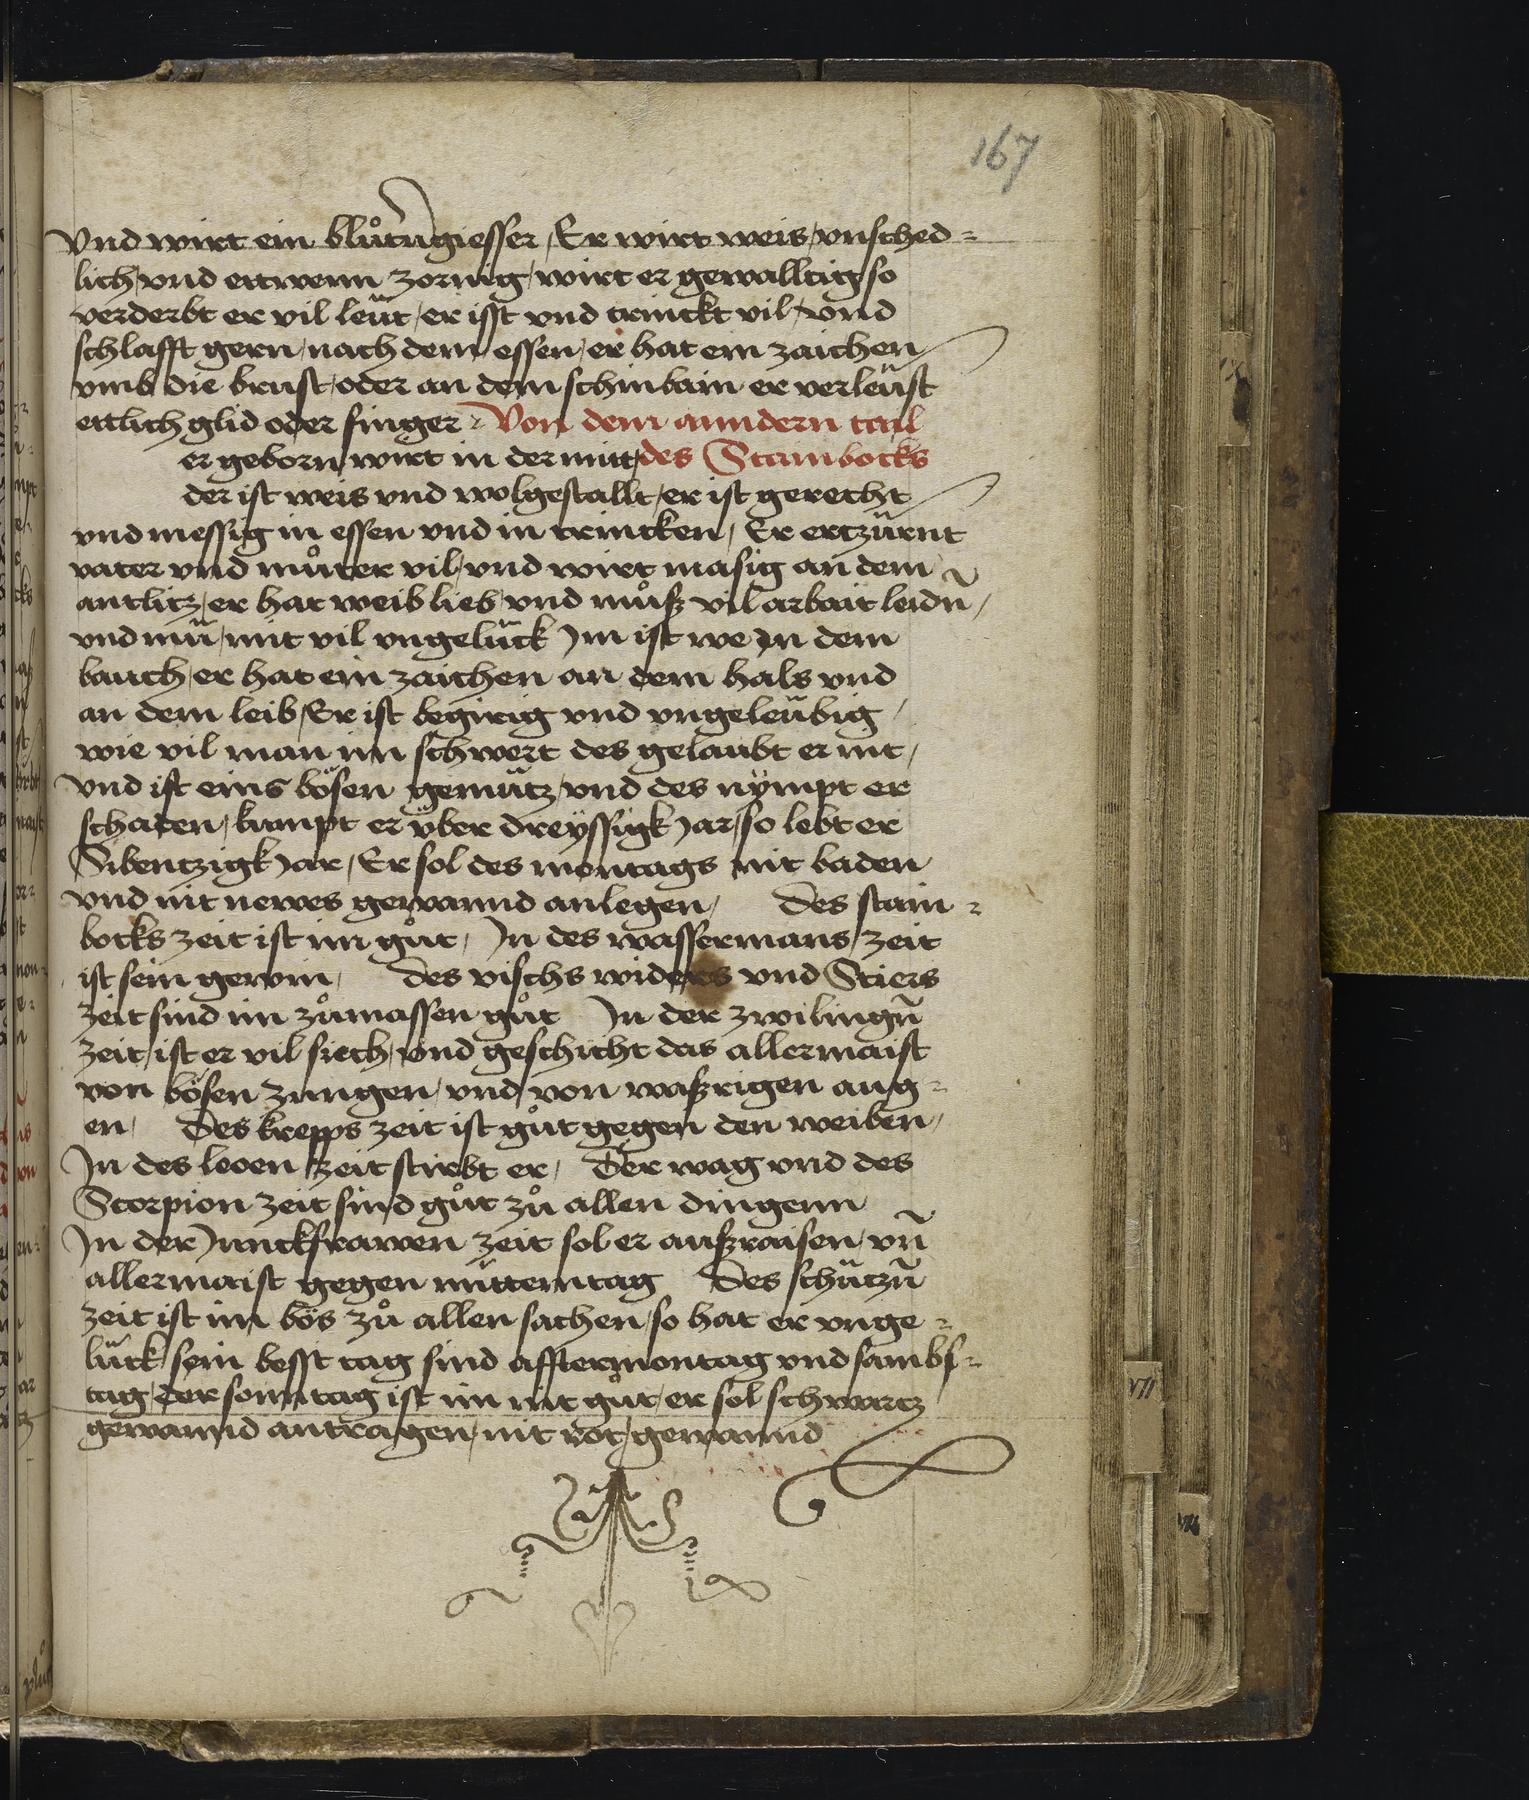 167
Vnd wirt ein blůtvergiesser / Er wirt weis / vnsched=
lich / vnd ettwenn zornig / wirt er gewalltig so
verderbt er vil leüt / er isst vnd trinckt vil / vnd
schlafft gern / nach dem essen / er hat ein zaichen
vmb die brust / oder an dem schinbain er verleüst
ettlich glid oder finger Von dem anndern tail
er geborn wirt in der mitt / des Stainbocks
der ist weis vnd wolgestallt / er ist gerecht
vnd messig in essen vnd in trincken / Er ertzürnt
vater vnd můter vil / vnd wirt masig an dem
antlitz / er hat weib lieb / vnd můß vil arbait leidn̄ /
vnd mü / mit vil vngelück Im ist we In dem
bauch / er hat ein zaichen an dem hals vnd
an dem leib / Er ist begirig vnd vngeleübig /
wie vil man im schwert des gelaubt er nit /
Vnd ist eins bösen gemütz / vnd des nÿmpt er
schaden / kumpt er v̈ber dreÿssigk Jar / so lebt er
Sibentzigk Jar / Er sol des montags nit baden
vnd nit newes gewannd anlegen / Des stain=
bocks zeit ist im gůt / In des wassermans zeit
ist sein gewin / Des vischs widers vnd Stiers
zeit sind im zůmassen gůt In der zwilingn̄
zeit / ist er vil siech / vnd geschicht das allermaist
von bösen zungen / vnd von waßrigen aug=
en / Des krepps zeit ist gůt gegen den weiben /
In des leoen zeit stirbt er / Der wag vnd des
Scorpion zeit sind gůt zů allen dingenn
In der Junckfrawen zeit sol er außraisen / vn̄
allermaist gegen mittemtag Des schützn̄
zeit ist im bös zů allen sachen / so hat er vnge=
lück / sein besst tag sind afftermontag vnd sambs=
tag / Der sonntag ist im nit gůt / er sol schwartz
gewannd antragen / nit rot / gewannd
VII